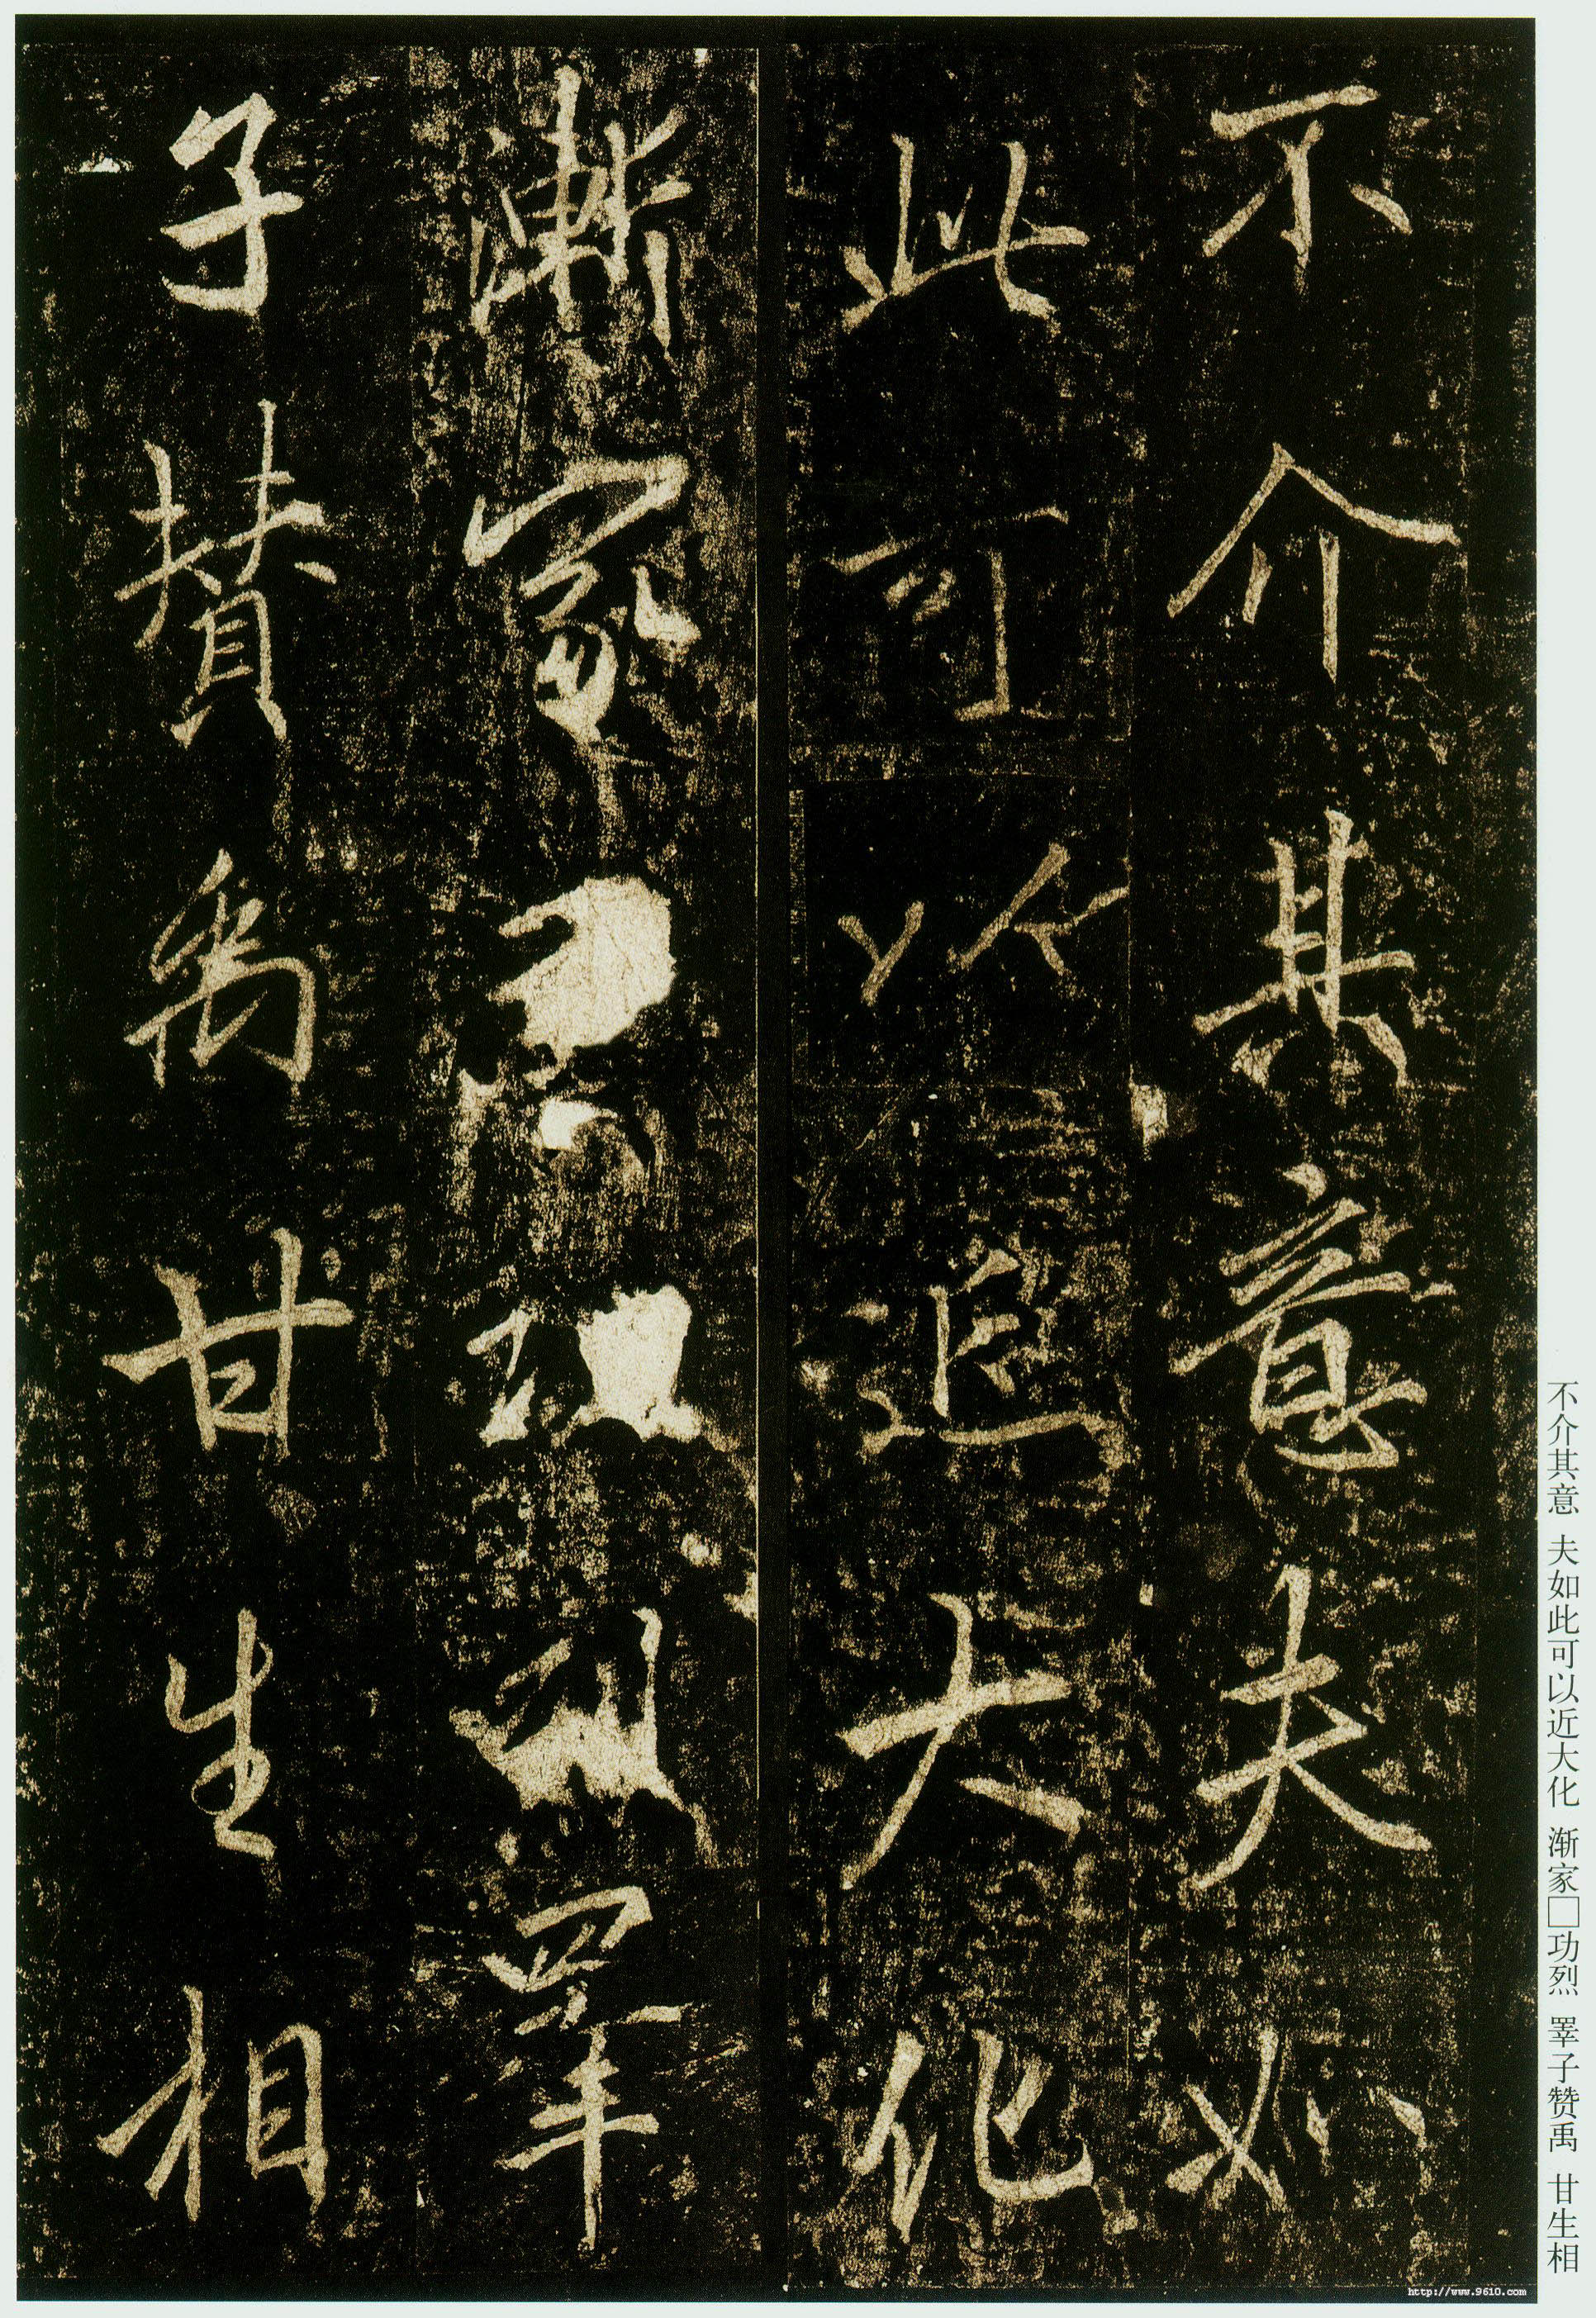 不介其意夫如
此可以近大化
漸家功烈睪
子賛禹甘生相
不介其意 夫如此可以近大化 渐家□功烈 睪子赞禹 甘生相
http://www.9610.com